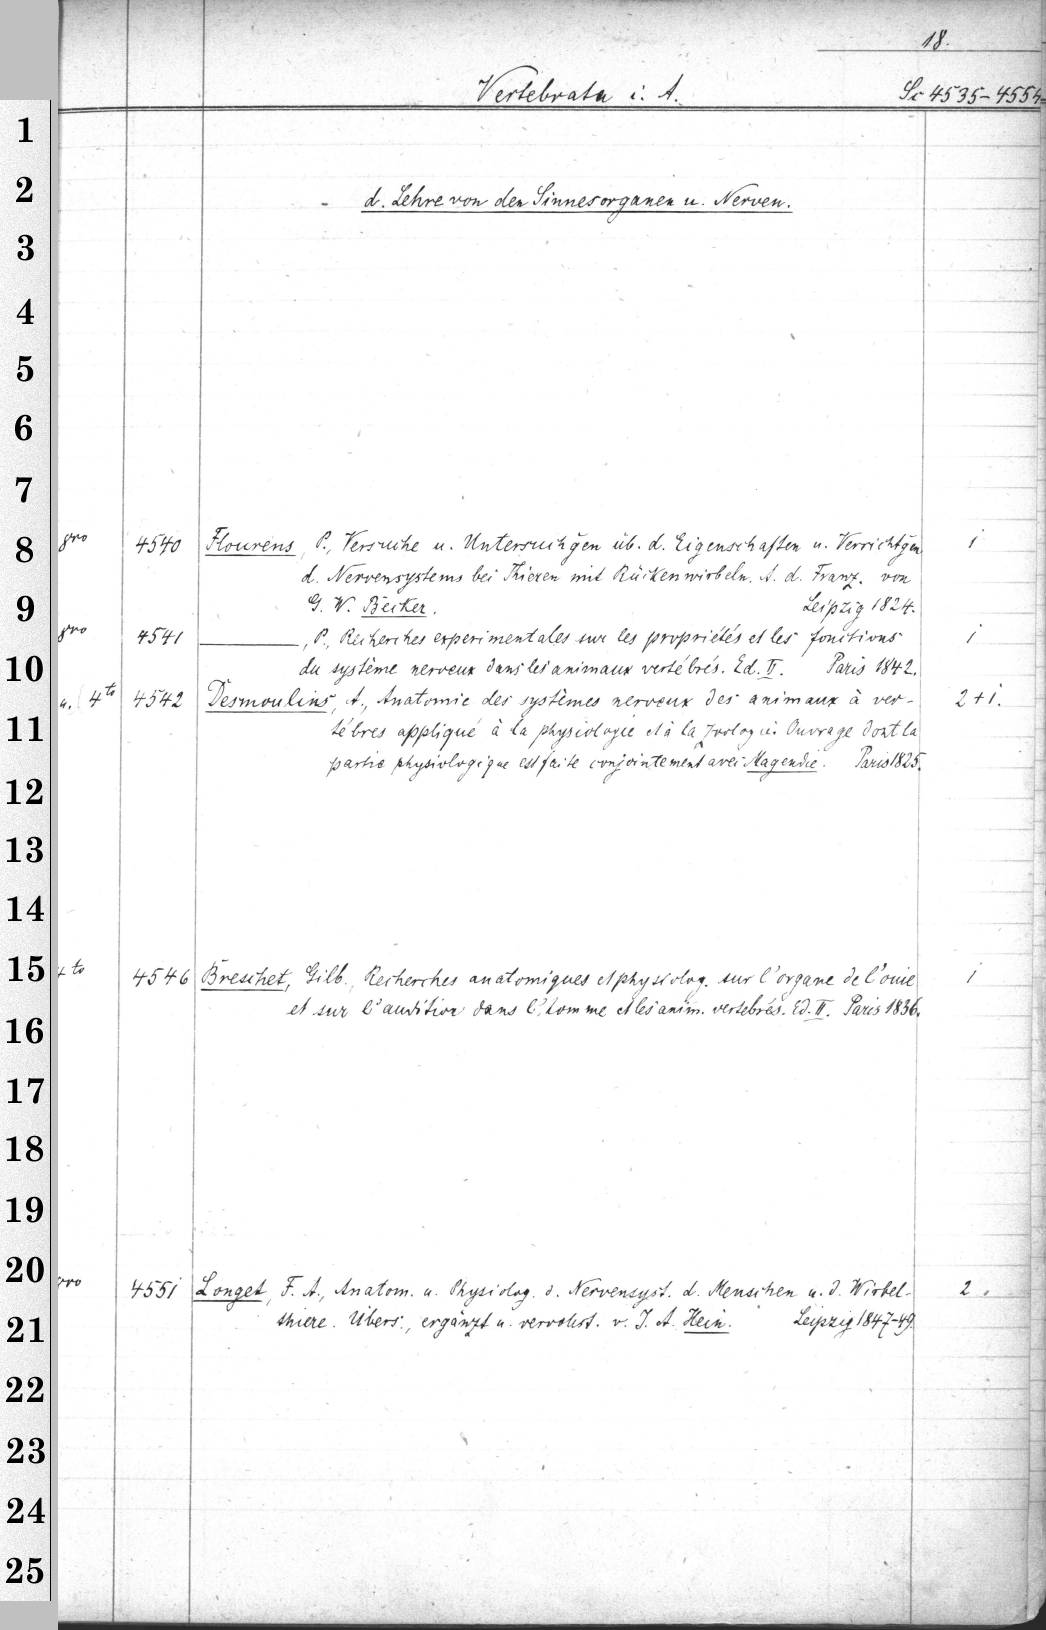 18.
Vertebrata i. A. Sc 4535-4554
d. Lehre von den Sinnesorganen u. Nerven.
8vo 4540 Flourens, P., Versuche u. Untersuchg̅en üb. d. Eigenschaften u. Verrichtg̅en 1
d. Nervensystems bei Thieren mit Rückenwirbeln. A. d. Franz. von
G. W. Becker. Leipzig 1824.
8vo 4541 ———, P., Recherches experimentales sur les propriétés et les fonctions 1
du système nerveux dans les animaux vertébrés. Ed. II. Paris 1842.
u. 4to 4542 Desmoulins, A., Anatomie des systèmes nerveux des animaux à ver- 2+1.
tébres appliqué à la physiologie et à la zoologie. Ouvrage dont la
partie physiologique est faite conjointement avec Magendie. Paris 1825.
4to 4546 Breschet, Gilb., Recherches anatomiques et physiolog. sur l'organe de l'ouie 1
et sur l'audition dans l'homme et les anim. vertebrés. Ed. II. Paris 1836.
8vo 4551 Longet, F. A., Anatom. u. Physiolog. d. Nervensyst. d. Menschen u. d. Wirbel- 2.
thiere. Übers., ergänzt u. vervollst. v. J. A. Hein. Leipzig 1847-49.
1
2
3
4
5
6
7
8
9
10
11
12
13
14
15
16
17
18
19
20
21
22
23
24
25